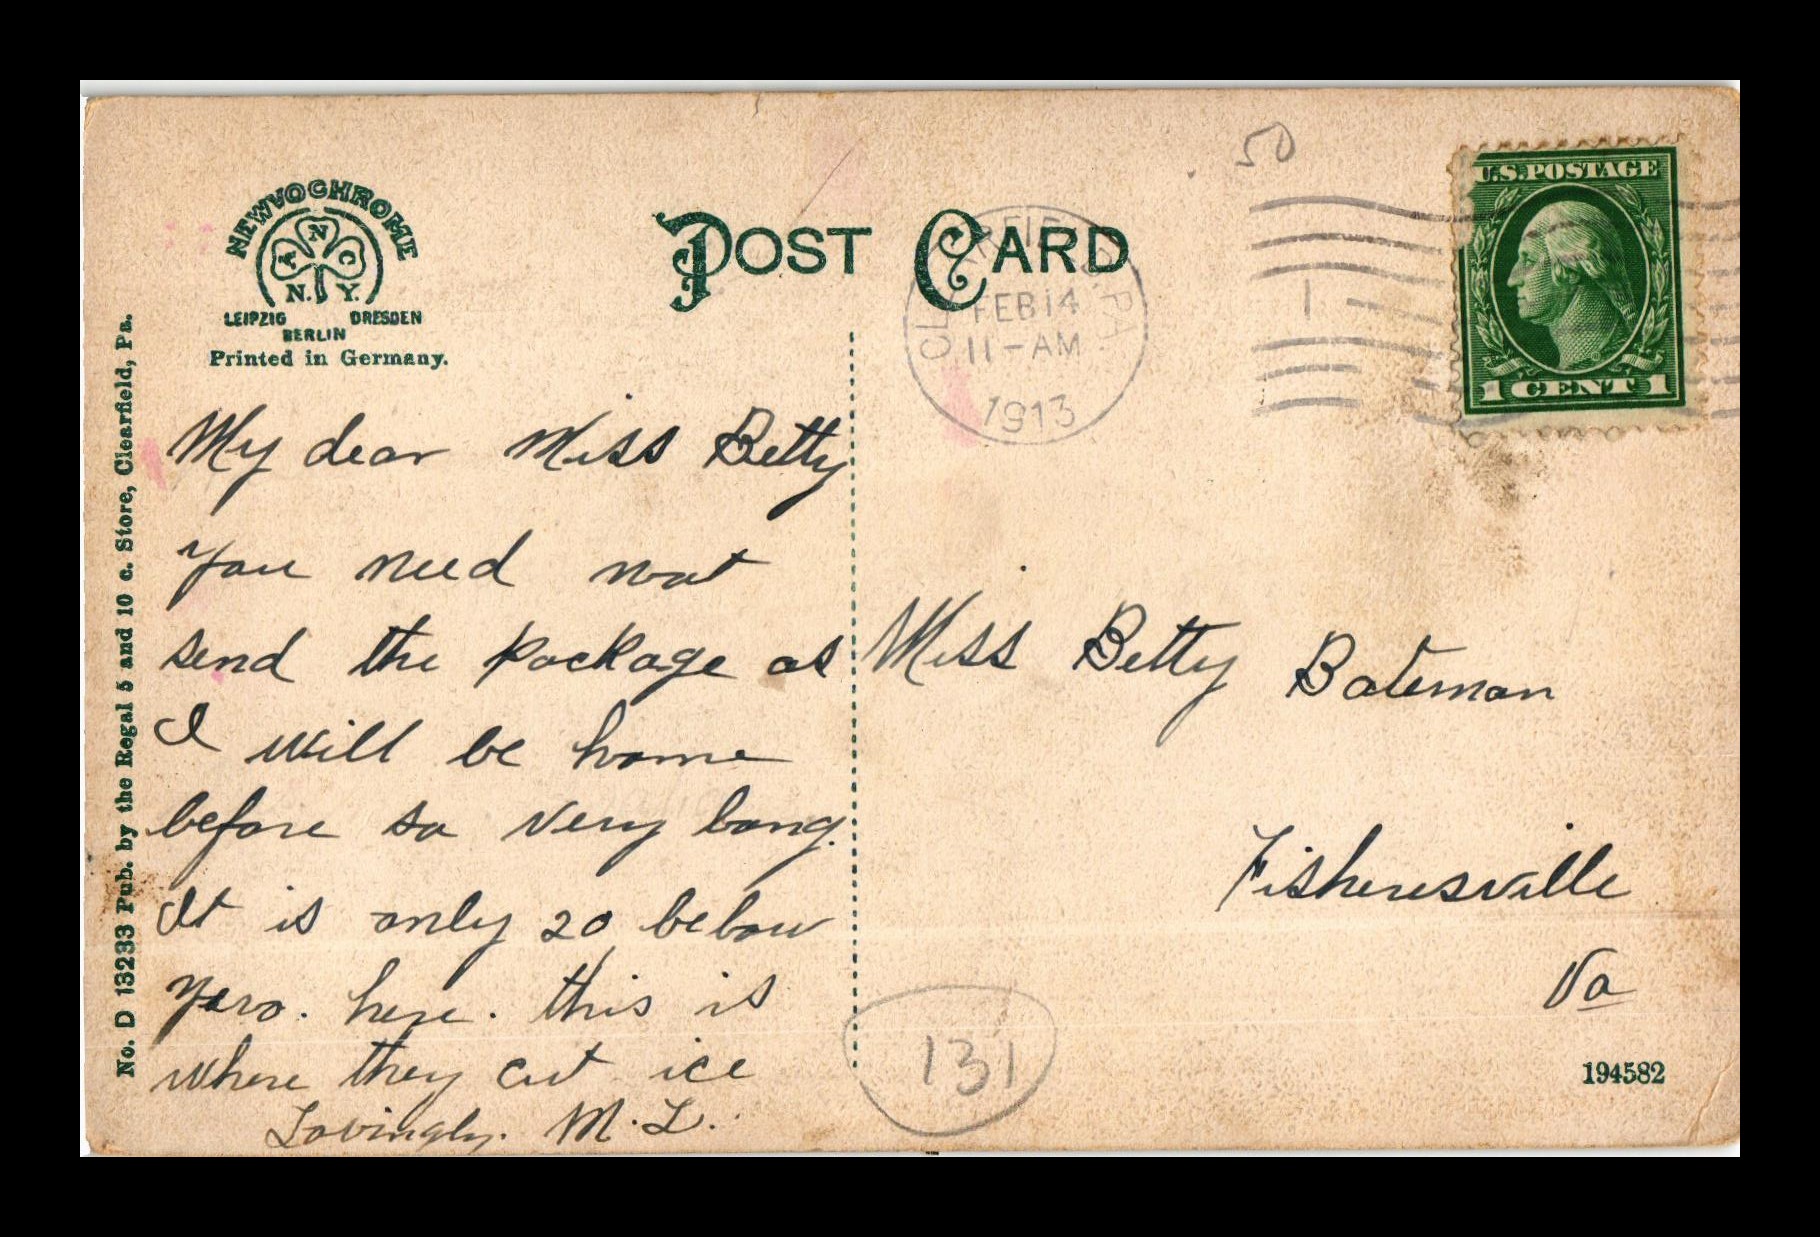 50
NEWVOCHROME
N Y C
N. Y.
LEIPZIG DRESDEN
BERLIN
Printed in Germany.
POST CARD
CLEARFIELD, PA.
FEB 14
11-AM
1913
1
U.S. POSTAGE
1 CENT 1
No. D 13233 Pub. by the Regal 5 and 10 c. Store, Clearfield, Pa.
My dear Miss Betty
You need not
send the package as
I will be home
before so very long.
It is only 20 below
zero. here. this is
where they cut ice
Lovingly. M. L.
Miss Betty Bateman
Fisheresville
Va
131
194582